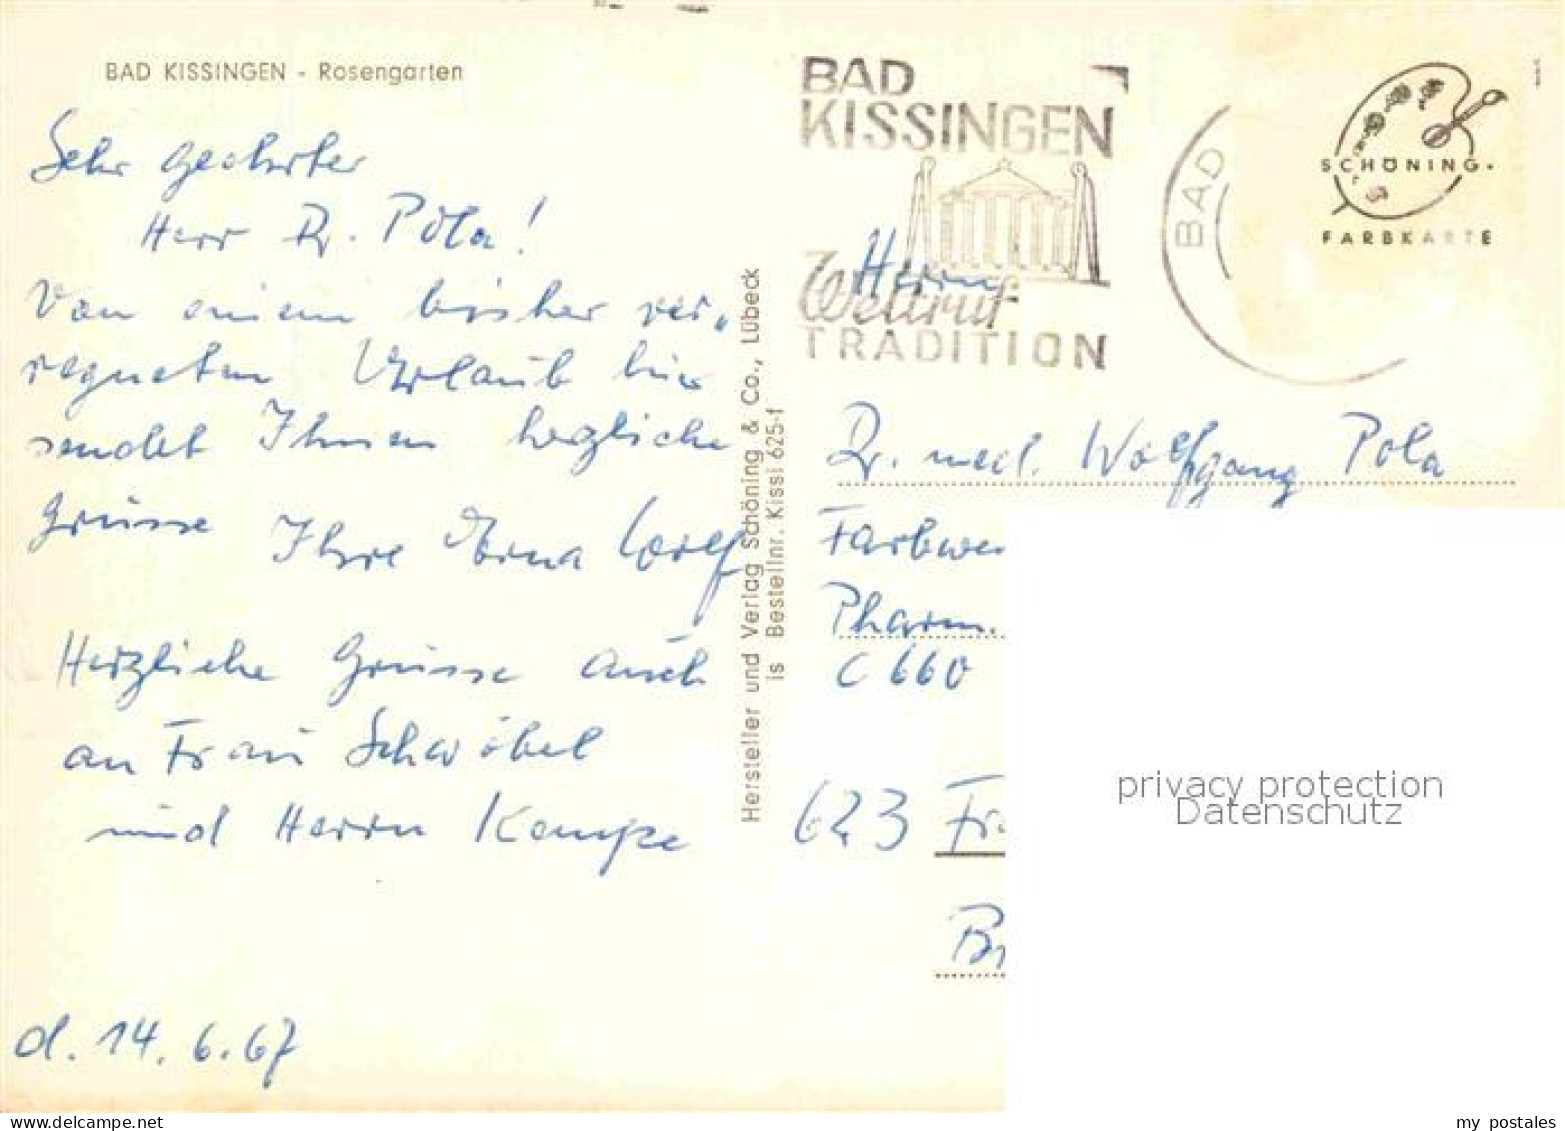 BAD KISSINGEN - Rosengarten
Sehr geehrter
Herr Dr. Pola!
Von einem bisher ver-
regneten Urlaub hier
sendet Ihnen herzliche
Grüsse
Ihre Erna Wolf
Herzliche Grüsse auch
an Frau Schwöbel
und Herrn Kempe
d. 14. 6. 67
Hersteller und Verlag Schöning & Co., Lübeck
is Bestellnr. Kissi 625-f
BAD
KISSINGEN
Weltruf
TRADITION
BAD
SCHÖNING-
FARBKARTE
Herrn
Dr. med. Wolfgang Pola
Farbwe
Pharm.
C 660
623 Fr
Br
privacy protection
Datenschutz
my postales